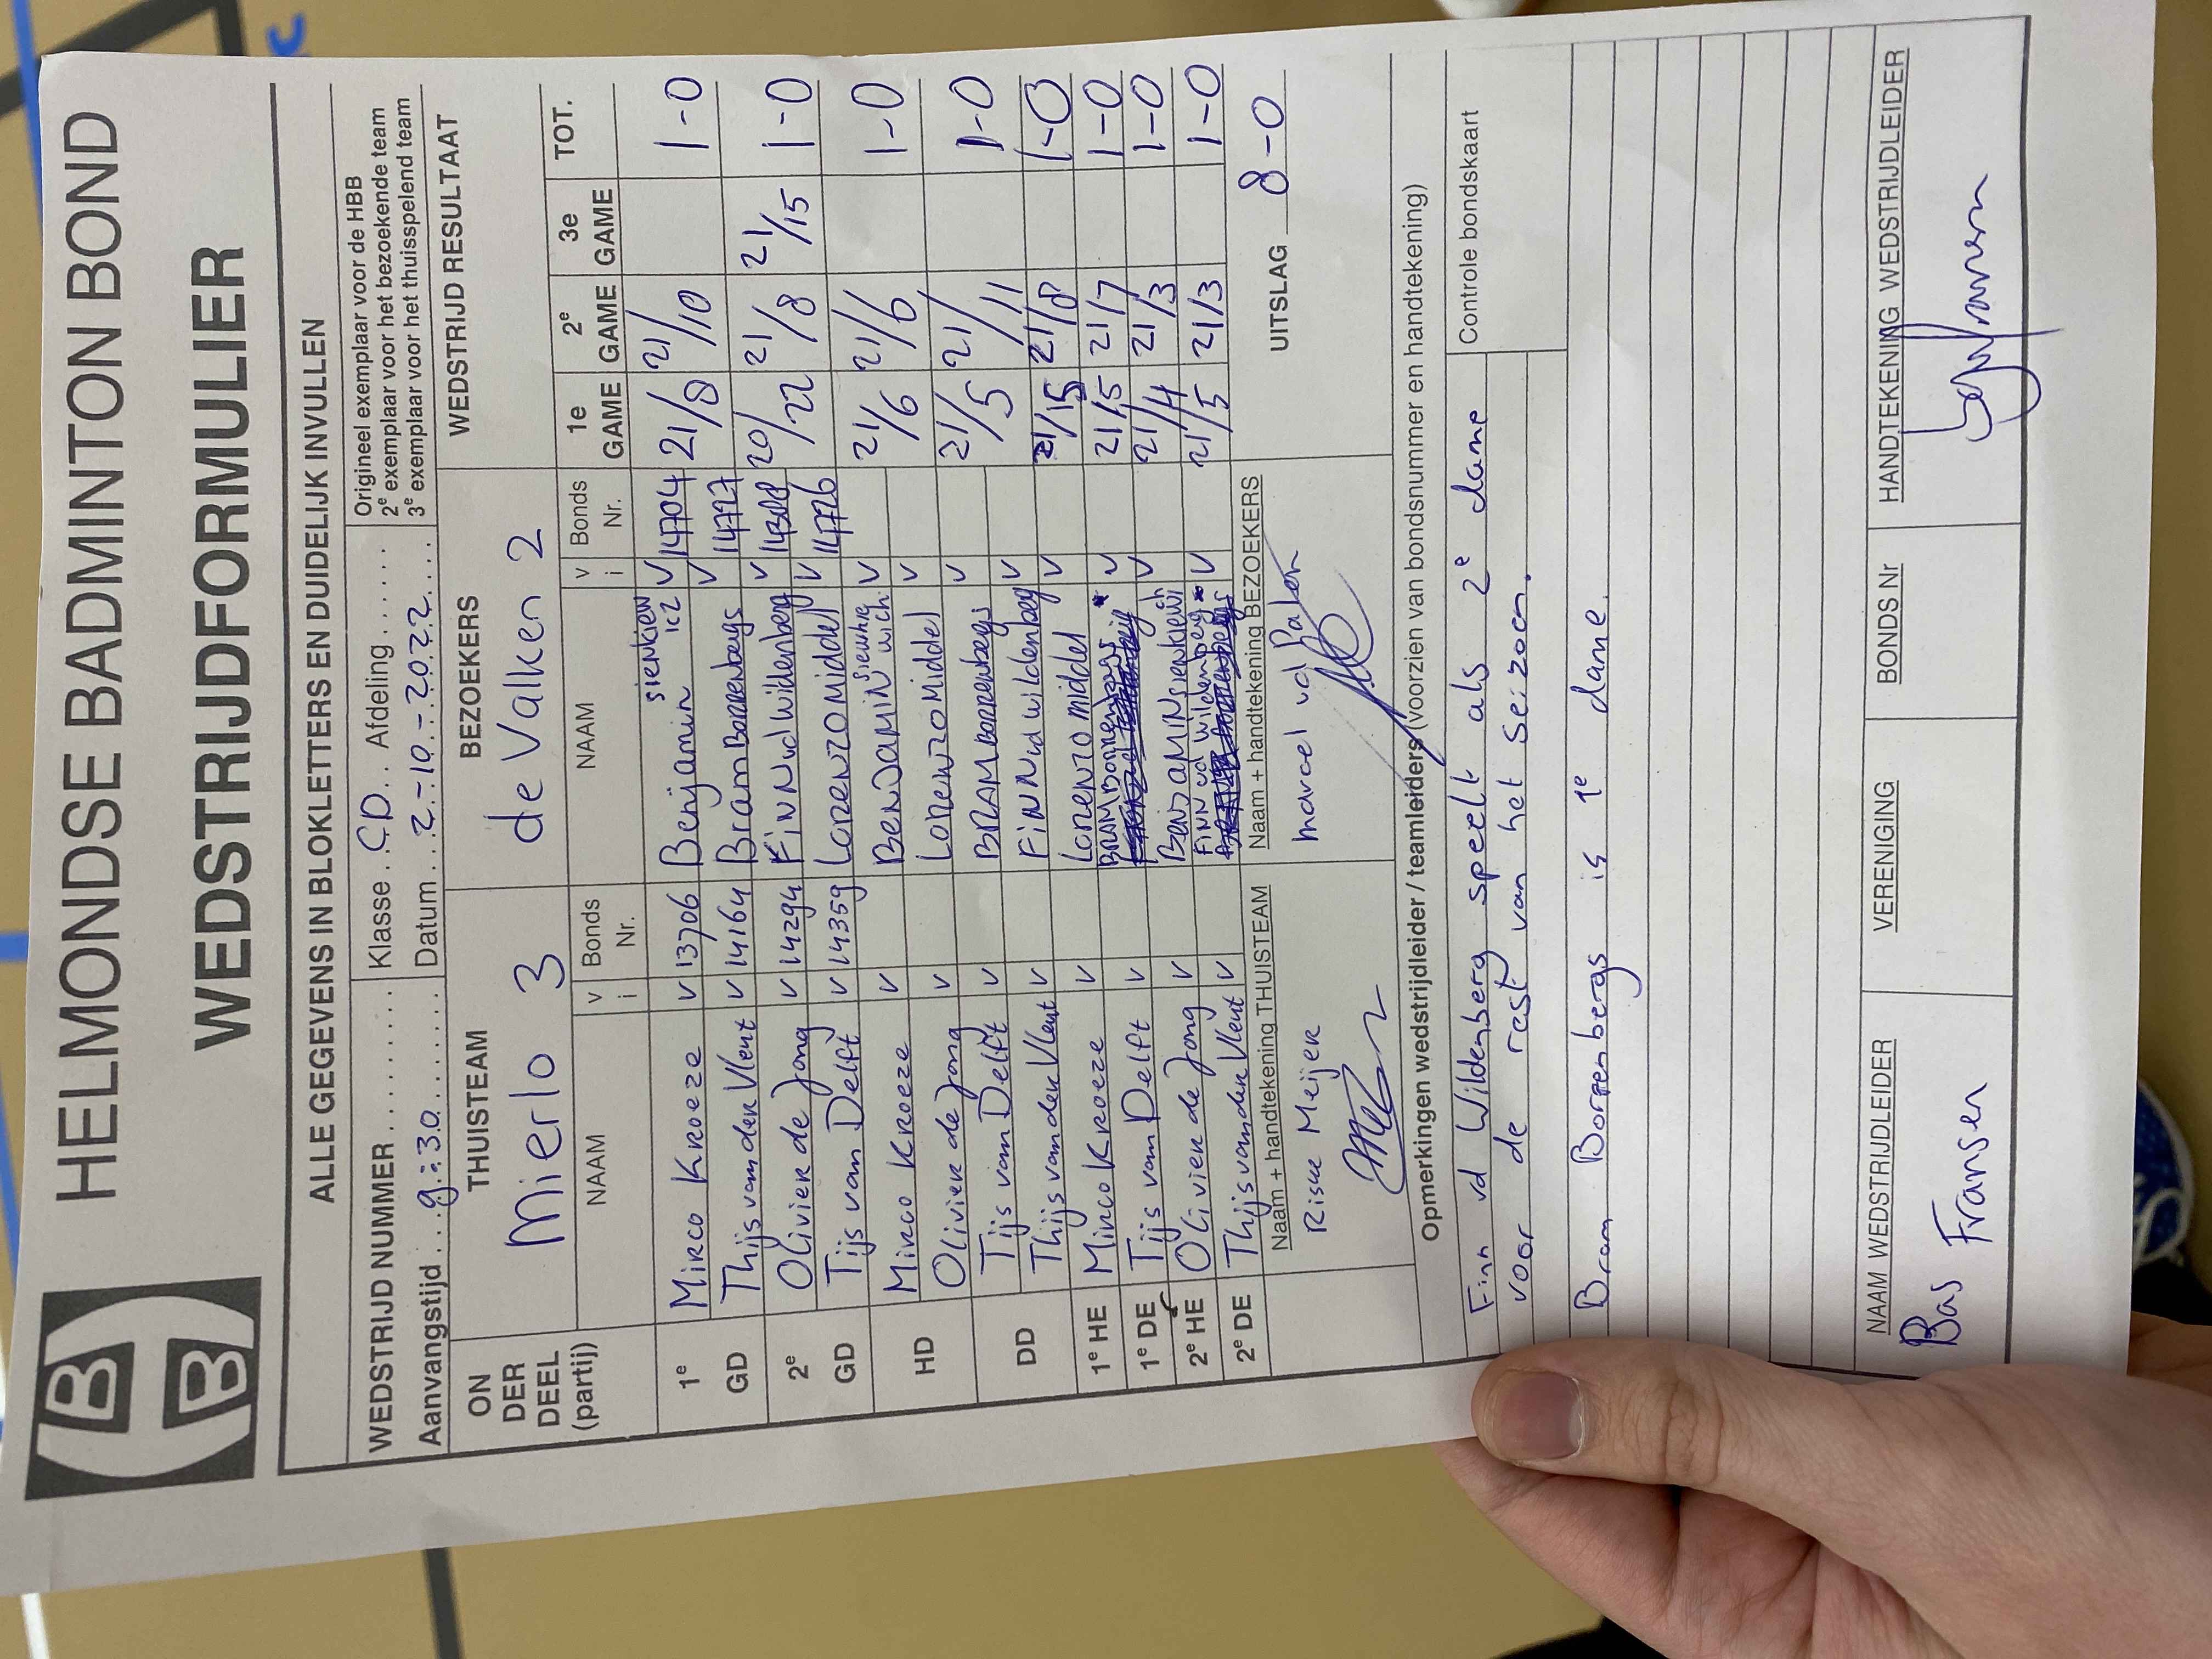 HELMONDSE BADMINTON BOND
WEDSTRIJDFORMULIER
B
B
ALLE GEGEVENS IN BLOKLETTERS EN DUIDELIJK INVULLEN
WEDSTRIJD NUMMER
Klasse CD Afdeling
Origineel exemplaar voor de HBB
2e exemplaar voor het bezoekende team
3e exemplaar voor het thuisspelend team
Aanvangstijd 9:30
Datum 2-10-2022
ON DER DEEL (partij)
THUISTEAM
Mierlo 3
BEZOEKERS
de Valken 2
WEDSTRIJD RESULTAAT
NAAM v i Bonds Nr. NAAM v i Bonds Nr. 1e GAME 2e GAME 3e GAME TOT.
1e GD Mirco Kroeze v 13706 Benjamin sienkiewicz v 14704 21/8 21/10 1-0
Thijs van der Vleut v 14164 Bram Borrenbergs v 14727
2e GD Olivier de Jong v 14294 FiNN vd wildenberg v 20/22 21/8 21/15 1-0
Tijs van Delft v 14359 Lorenzo Middel v 14726
HD Mirco Kroeze v BenJaMiN v 21/6 21/6 1-0
Olivier de Jong v Lorenzo Middel v
DD Tijs van Delft v BRAM borrenbergs v 21/5 21/11 1-0
Thijs van der Vleut v FiNN vd wildenberg v
1e HE Mirco Kroeze v Lorenzo middel v 21/15 21/8 1-0
1e DE Tijs van Delft v BRAM Borrenbergs * v 21/5 21/7 1-0
2e HE Olivier de Jong v BENJAMIN v 21/4 21/3 1-0
2e DE Thijs van der Vleut v FiNN vd wildenberg * v 21/5 21/3 1-0
Naam + handtekening THUISTEAM
Naam + handtekening BEZOEKERS
UITSLAG 8-0
Meijer
marcel vd Palen
Opmerkingen wedstrijdleider / teamleiders (voorzien van bondsnummer en handtekening)
Finn vd Wildenberg speelt als 2e dame
Controle bondskaart
voor de rest van het seizoen.
Bram Borrenbergs is 1e dame.
NAAM WEDSTRIJDLEIDER
VERENIGING
BONDS Nr
HANDTEKENING WEDSTRIJDLEIDER
Bas Fransen